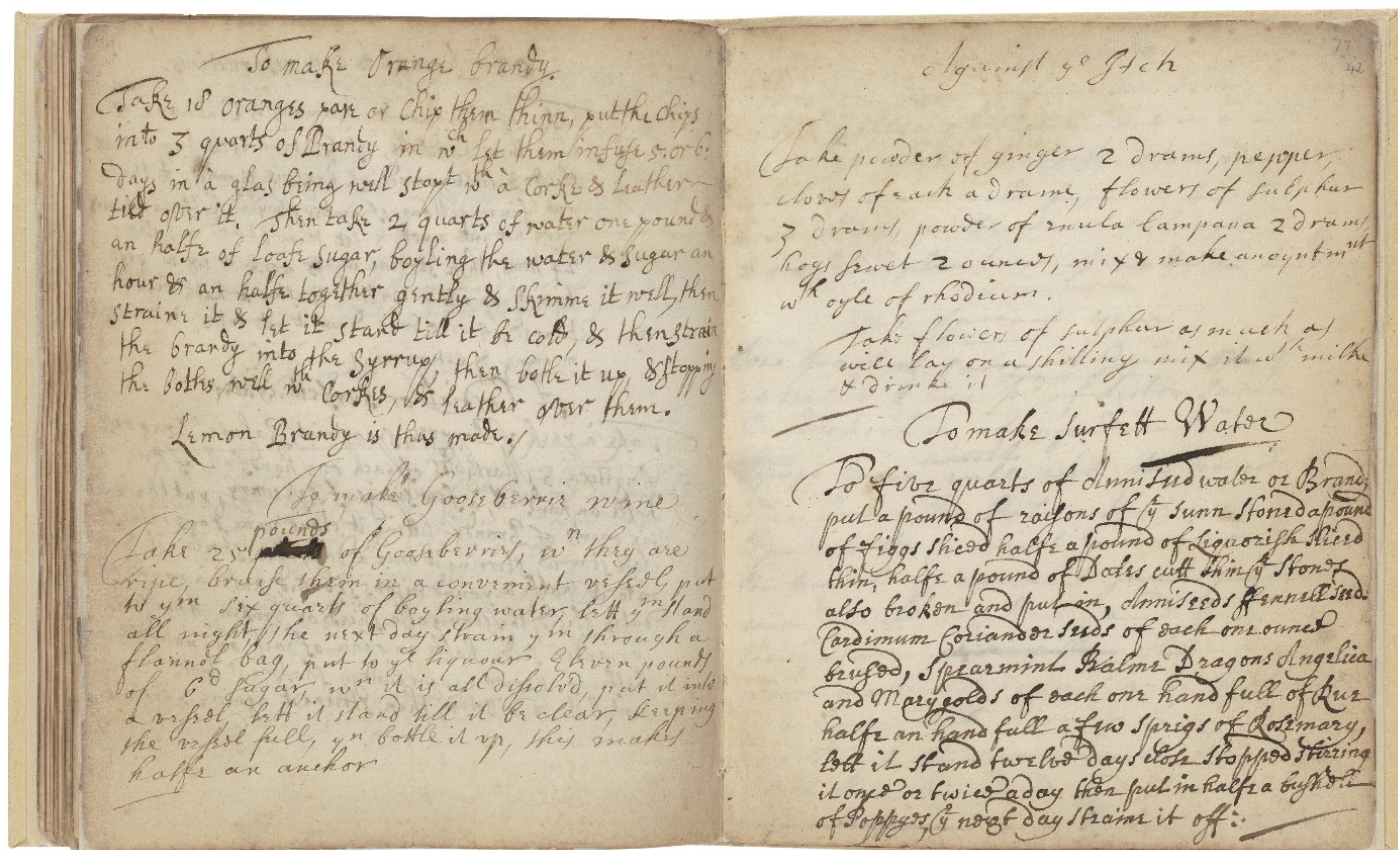 To make Orange brandy.
Take 18 oranges pare or Chip them thinn, put the Chips
into 3 quarts of Brandy in wch let them infuse 5. or 6.
days in à glas being well stopt wth à Corke & leather
tied over it. Then take 2 quarts of water one pound &
an halfe of loafe Sugar, boyling the water & Sugar an
hour & an halfe together gently & Skimme it well, then
straine it & let it stand till it be cold, & then strain
the brandy into the Syrrup, then botle it up, & stopping
the botles well wth Corkes, & leather over them.
Lemon Brandy is thus made./
To make Gooseberrie wine
pounds
Take 25 of Gooseberries, wn they are
ripe, bruise them in a convenient vessel, put
to ym six quarts of boyling water, lett ym stand
all night, the next day strain ym through a
flannel bag, put to ye liquour Eleven pounds
of 6d sugar, wn it is all dissolvd, put it into
a vessel, lett it stand till it be clear, keeping
the vessel full, yn bottle it up, this makes
halfe an anchor
77
42
Against ye Itch
Take powder of ginger 2 drams, pepper,
cloves of each a drame, flowers of sulphur
3 drams, powder of enula campana 2 drams
hogs sewet 2 ounces, mix & make an oyntmnt
wth oyle of rhodium.
Take flowers of sulphur as much as
will lay on a shilling mix it wth milke
& drinke it
To make Surfett Water
To five quarts of Anniseed water or Brandy
put a pound of raisons of ye sunn stoned a pound
of figgs sliced halfe a pound of Liquorish sliced
thin, halfe a pound of Dates cutt thin ye stones
also broken and put in, Anniseeds ffennell seeds
Cardimum Coriander seeds of each one ounce
brused, Spearmint Balme Dragons Angelica
and Marygolds of each one hand full of Rue
halfe an hand full a few sprigs of Rosemary,
lett it stand twelve days close stopped stirring
it once or twice a day then put in halfe a bushell
of Poppyes, ye next day straine it off: